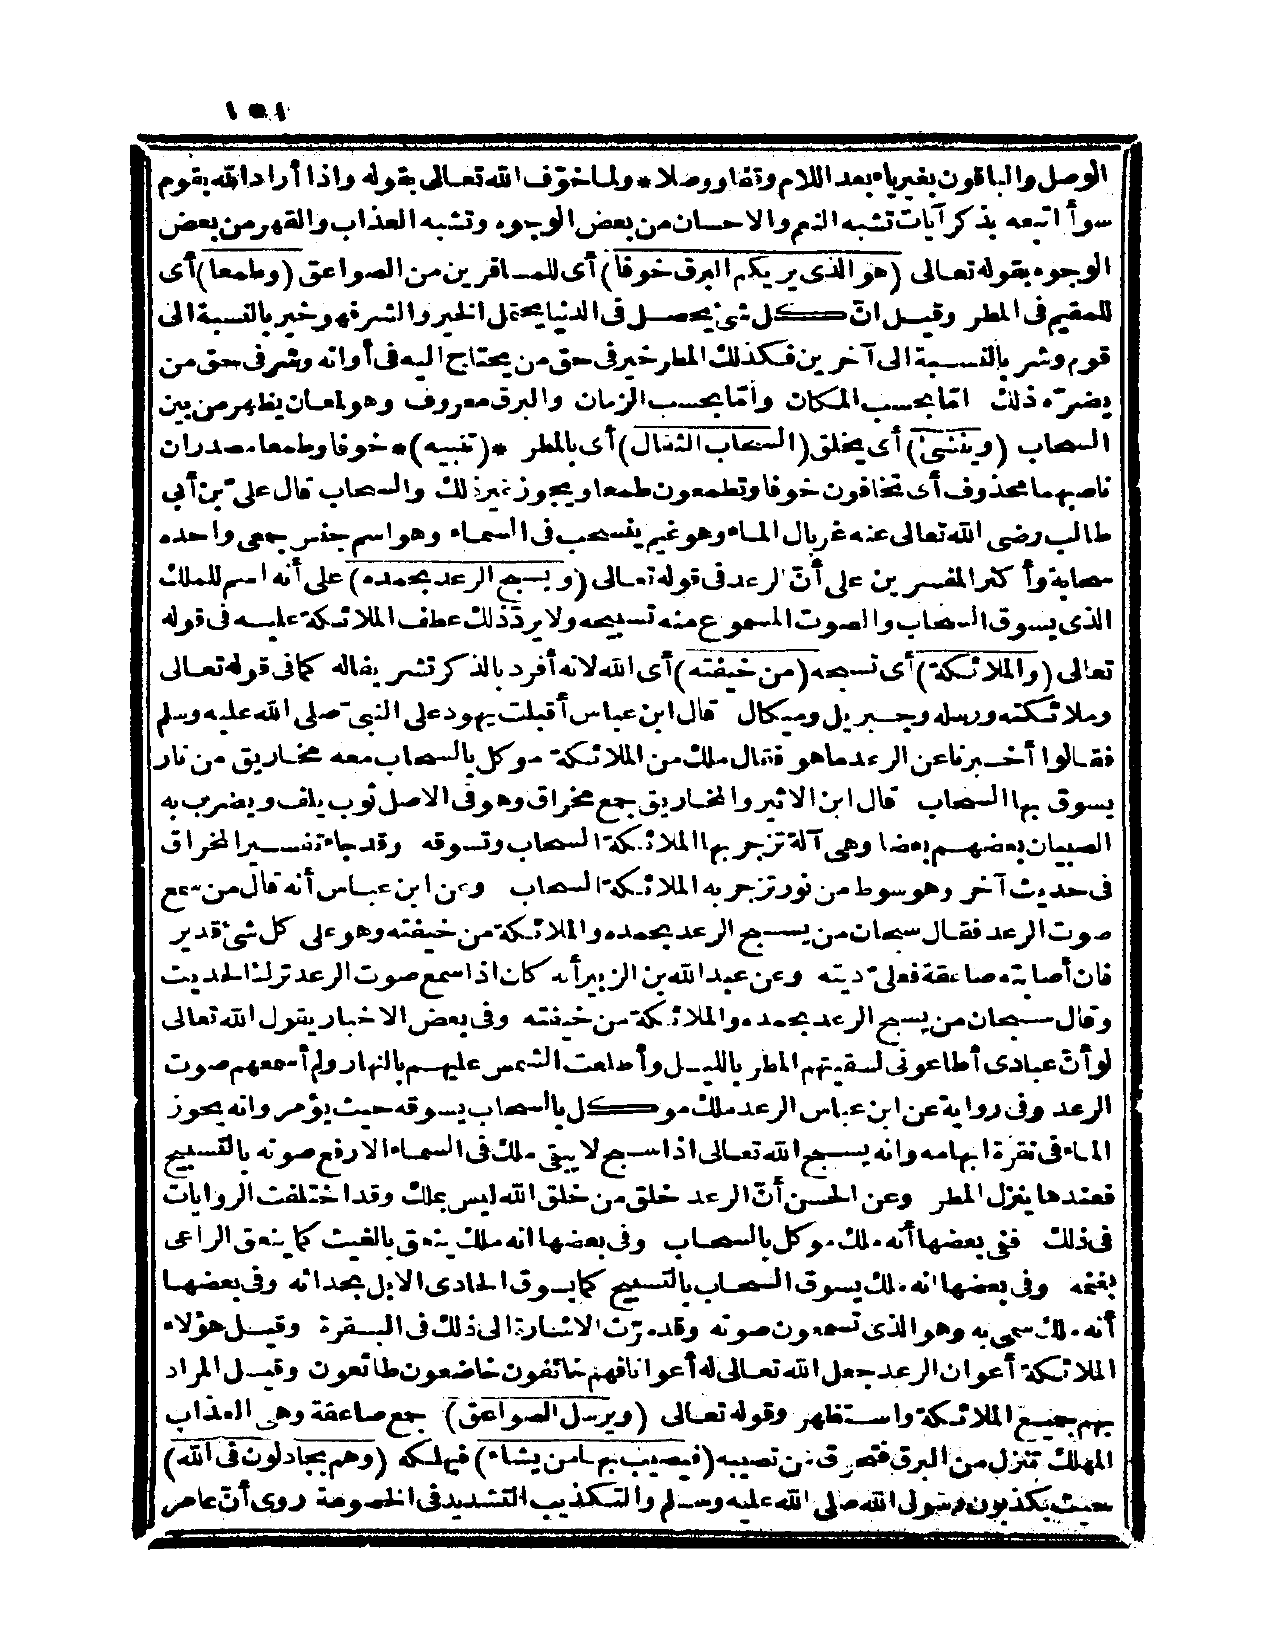 ١٥١
الوصل والباقون بغير ياء بعد اللام وقفا ووصلا * ولما خوّف الله تعالى بقوله واذا أراد الله بقوم
سوأ اتبعه بذكر آيات تشبه النعم والاحسان من بعض الوجوه وتشبه العذاب والقهر من بعض
الوجوه بقوله تعالى (هو الذى يريكم البرق خوفا) أى للمسافرين من الصواعق (وطمعا) أى
للمقيم فى المطر وقيل انّ كل شئ يحصل فى الدنيا يحتمل الخير والشر فهو خير بالنسبة الى
قوم وشر بالنسبة الى آخرين فكذلك المطر خير فى حق من يحتاج اليه فى أوانه وشر فى حق من
يضرّه ذلك امّا بحسب المكان وامّا بحسب الزمان والبرق معروف وهو لمعان يظهر من بين
السحاب (وينشئ) أى يخلق (السحاب الثقال) أى بالمطر *(تنبيه)* خوفا وطمعا مصدران
ناصبهما محذوف أى تخافون خوفا وتطمعون طمعا ويجوز غير ذلك والسحاب قال علىّ بن أبى
طالب رضى الله تعالى عنه غربال الماء وهو غيم ينسحب فى السماء وهو اسم جنس جمعى واحده
سحابة وأكثر المفسرين على أنّ الرعد فى قوله تعالى (ويسبح الرعد بحمده) على أنه اسم للملك
الذى يسوق السحاب والصوت المسموع منه تسبيحه ولا يردّ ذلك عطف الملائكة عليه فى قوله
تعالى (والملائكة) أى تسبحه (من خيفته) أى الله لانه أفرد بالذكر تشريفاله كما فى قوله تعالى
وملائكته ورسله وجبريل وميكال قال ابن عباس أقبلت يهود على النبىّ صلى الله عليه وسلم
فقالوا أخبرنا عن الرعد ما هو فقال ملك من الملائكة موكل بالسحاب معه مخاريق من نار
يسوق بها السحاب قال ابن الاثير والمخاريق جمع مخراق وهو فى الاصل ثوب يلف ويضرب به
الصبيان بعضهم بعضا وهى آلة تزجر بها الملائكة السحاب وتسوقه وقد جاء تفسير المخراق
فى حديث آخر وهو سوط من نور تزجر به الملائكة السحاب وعن ابن عباس أنه قال من سمع
صوت الرعد فقال سبحان من يسبح الرعد بحمده والملائكة من خيفته وهو على كل شئ قدير
فان أصابته صاعقة فعلىّ ديته وعن عبد الله بن الزبير أنه كان اذا سمع صوت الرعد ترك الحديث
وقال سبحان من يسبح الرعد بحمده والملائكة من خيفته وفى بعض الاخبار يقول الله تعالى
لو أنّ عبادى أطاعونى لسقيتهم المطر بالليل وأطلعت الشمس عليهم بالنهار ولم أسمعهم صوت
الرعد وفى رواية عن ابن عباس الرعد ملك موكل بالسحاب يسوقه حيث يؤمر وانه يحوز
الماء فى نقرة ابهامه وانه يسبح الله تعالى اذا سبح لا يبقى ملك فى السماء الا رفع صوته بالتسبيح
فعندها ينزل المطر وعن الحسن أنّ الرعد خلق من خلق الله ليس بملك وقد اختلفت الروايات
فى ذلك ففى بعضها أنه ملك موكل بالسحاب وفى بعضها انه ملك ينعق بالغيث كما ينعق الراعى
بغنمه وفى بعضها انه ملك يسوق السحاب بالتسبيح كما يسوق الحادى الابل بحدائه وفى بعضها
أنه ملك سمى به وهو الذى تسمعون صوته وقد مرّت الاشارة الى ذلك فى البقرة وقيل هؤلاء
الملائكة أعوان الرعد جعل الله تعالى له أعوانا فهم خائفون خاضعون طائعون وقيل المراد
بهم جميع الملائكة واستظهر وقوله تعالى (ويرسل الصواعق) جمع صاعقة وهى العذاب
المهلك تنزل من البرق فتحرق من تصيبه (فيصيب بها من يشاء) فيهلكه (وهم يجادلون فى الله)
حيث يكذبون رسول الله صلى الله عليه وسلم والتكذيب التشديد فى الخصومة روى أنّ عامر